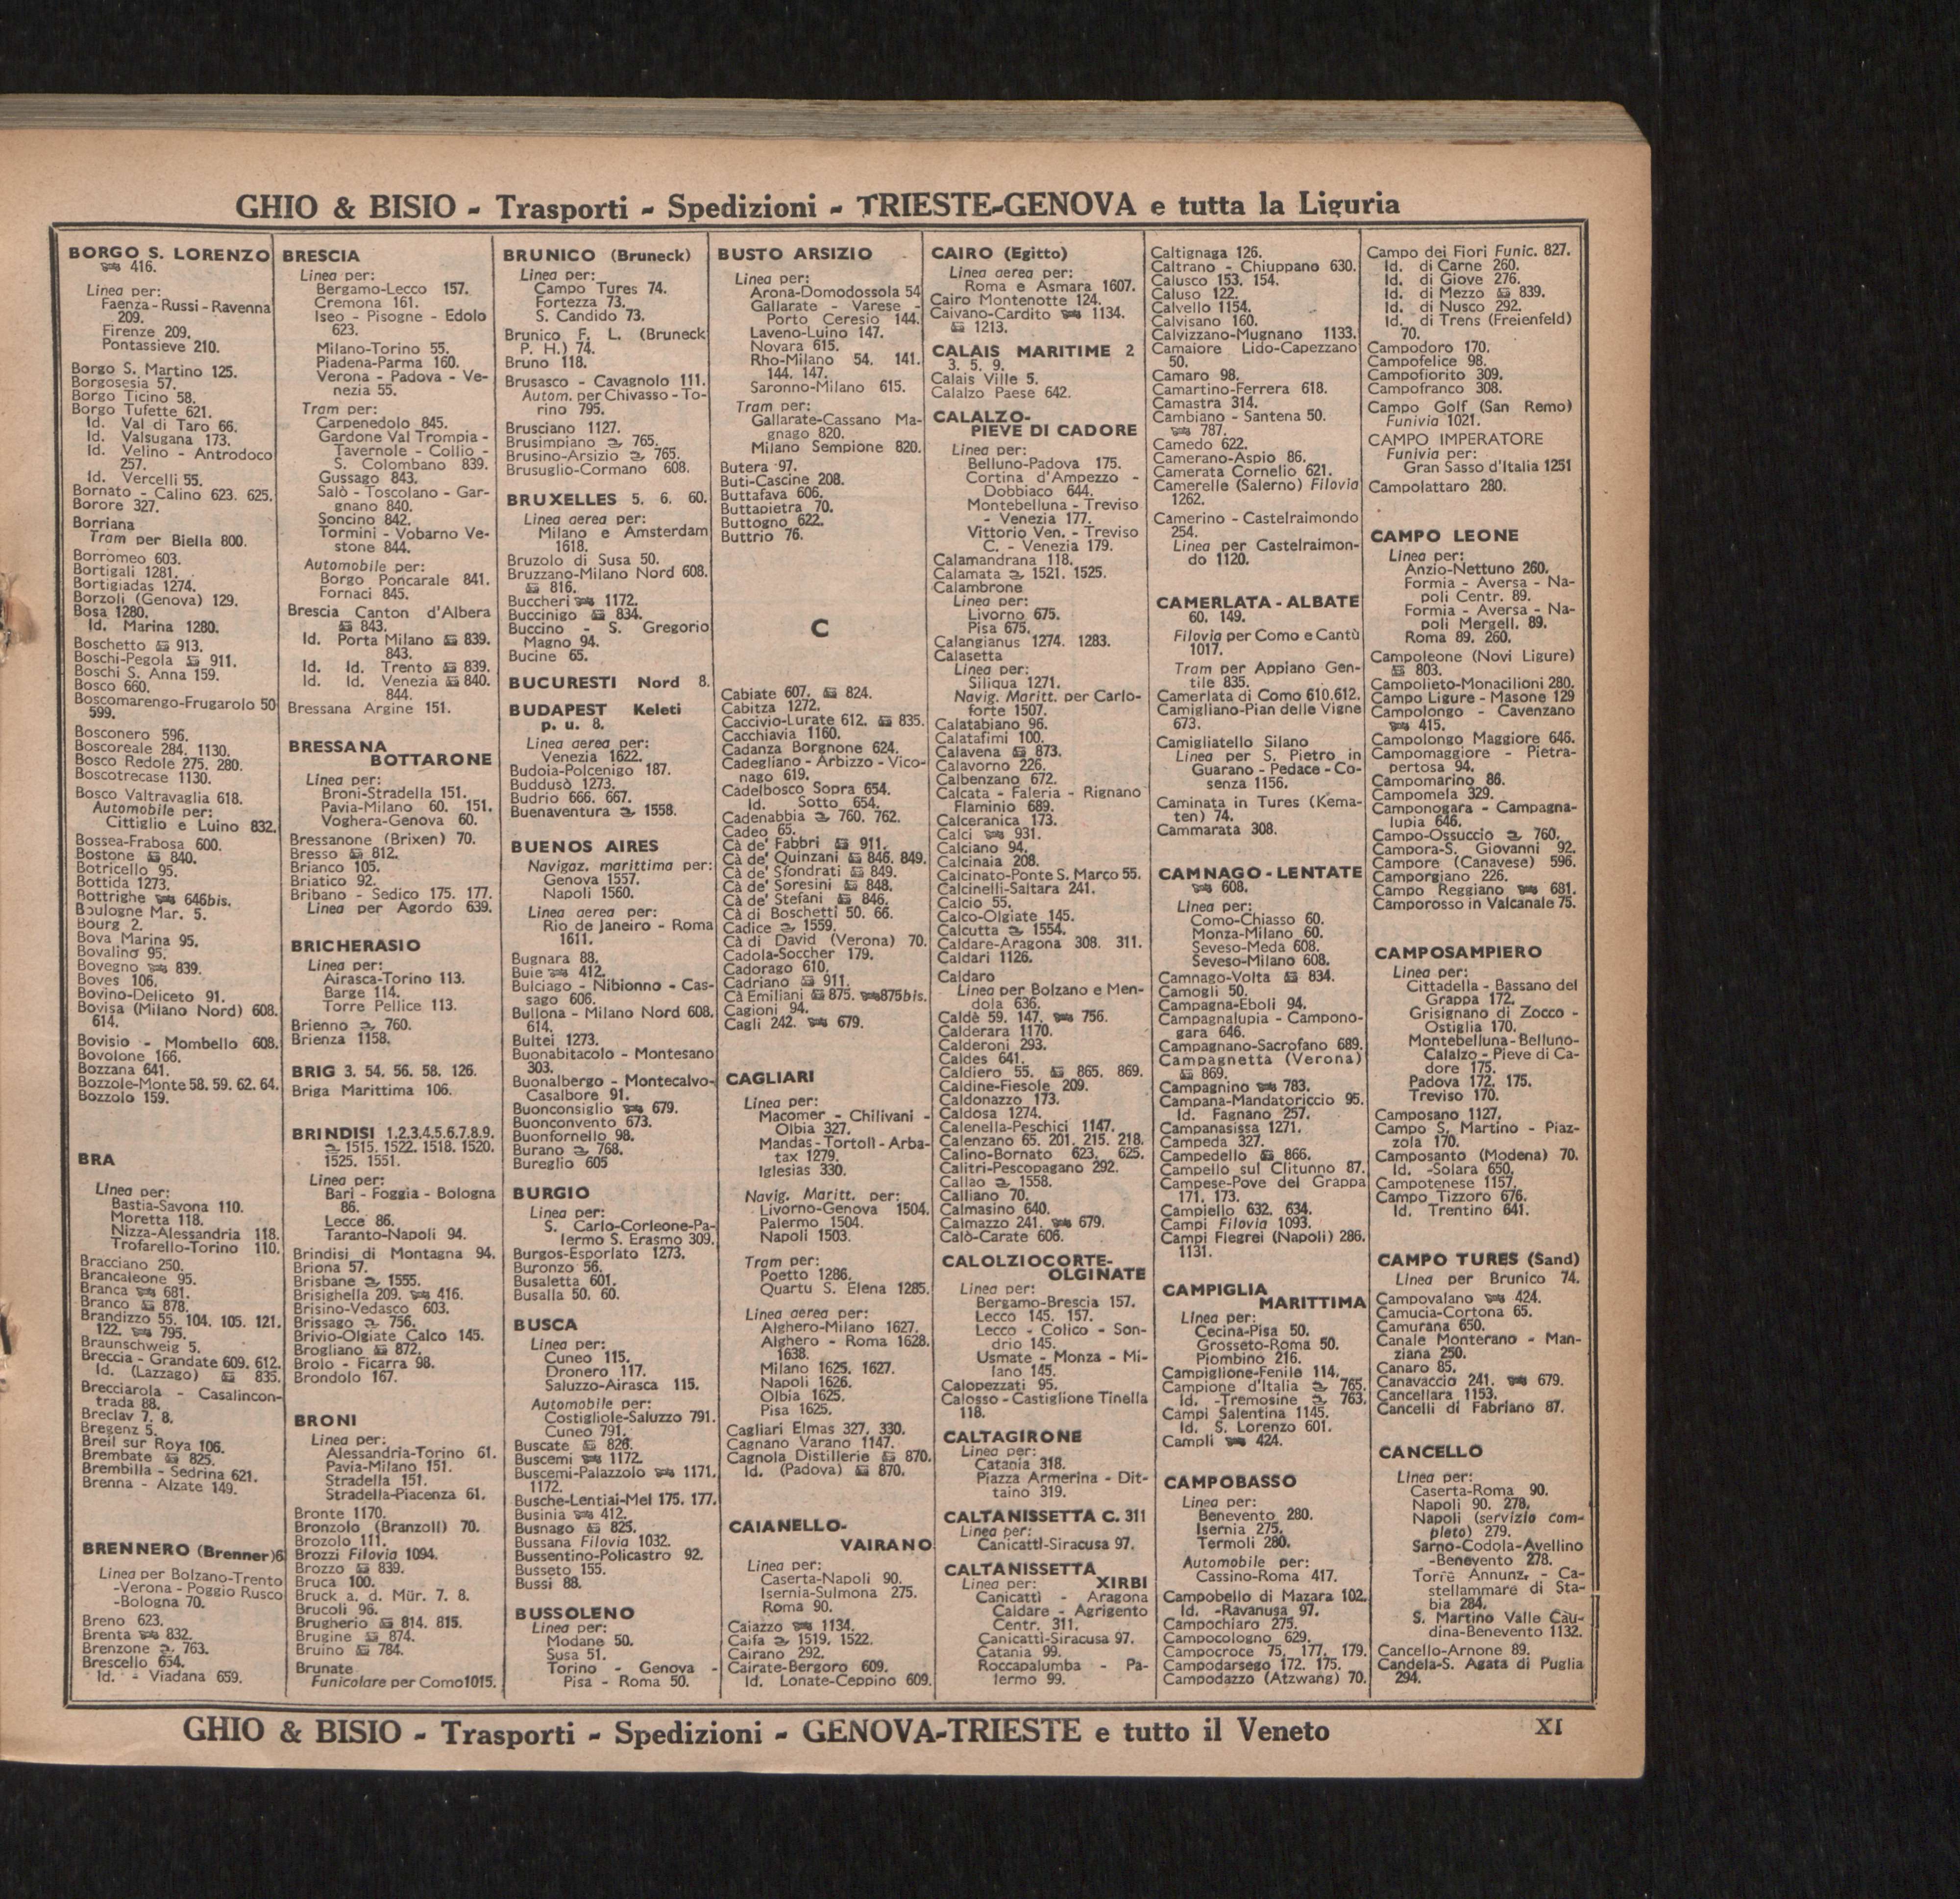 GHIO & BISIO - Trasporti - Spedizioni - TRIESTE-GENOVA e tutta la Liguria
BORGO S. LORENZO
416.
Linea per:
Faenza-Russi-Ravenna
209.
Firenze 209.
Pontassieve 210.
Borgo S. Martino 125.
Borgosesia 57.
Borgo Ticino 58.
Borgo Tufette 621.
Id. Val di Taro 66.
Id. Valsugana 173.
Id. Velino - Antrodoco
257.
Id. Vercelli 55.
Bornato - Calino 623. 625.
Borore 327.
Borriana
Tram per Biella 800.
Borromeo 603.
Bortigali 1281.
Bortigiadas 1274.
Borzoli (Genova) 129.
Bosa 1280.
Id. Marina 1280.
Boschetto 913.
Boschi-Pegola 911.
Boschi S. Anna 159.
Bosco 660.
Boscomarengo-Frugarolo 50
599.
Bosconero 596.
Boscoreale 284. 1130.
Bosco Redole 275. 280.
Boscotrecase 1130.
Bosco Valtravaglia 618.
Automobile per:
Cittiglio e Luino 832.
Bossea-Frabosa 600.
Bostone 840.
Botricello 95.
Bottida 1273.
Bottrighe 646bis.
Boulogne Mar. 5.
Bourg 2.
Bova Marina 95.
Bovalino 95.
Bovegno 839.
Boves 106.
Bovino-Deliceto 91.
Bovisa (Milano Nord) 608.
614.
Bovisio - Mombello 608.
Bovolone 166.
Bozzana 641.
Bozzole-Monte 58. 59. 62. 64.
Bozzolo 159.
BRA
Linea per:
Bastia-Savona 110.
Moretta 118.
Nizza-Alessandria 118.
Trofarello-Torino 110.
Bracciano 250.
Brancaleone 95.
Branca 681.
Branco 878.
Brandizzo 55. 104. 105. 121.
122. 795.
Braunschweig 5.
Breccia - Grandate 609. 612.
Id. (Lazzago) 835.
Brecciarola - Casalincon-
trada 88.
Breclav 7. 8.
Bregenz 5.
Breil sur Roya 106.
Brembate 825.
Brembilla - Sedrina 621.
Brenna - Alzate 149.
BRENNERO (Brenner)6
Linea per Bolzano-Trento
-Verona - Poggio Rusco
-Bologna 70.
Breno 623.
Brenta 832.
Brenzone 763.
Brescello 654.
Id. - Viadana 659.
BRESCIA
Linea per:
Bergamo-Lecco 157.
Cremona 161.
Iseo - Pisogne - Edolo
623.
Milano-Torino 55.
Piadena-Parma 160.
Verona - Padova - Ve-
nezia 55.
Tram per:
Carpenedolo 845.
Gardone Val Trompia -
Tavernole - Collio -
S. Colombano 839.
Gussago 843.
Salò - Toscolano - Gar-
gnano 840.
Soncino 842.
Tormini - Vobarno Ve-
stone 844.
Automobile per:
Borgo Poncarale 841.
Fornaci 845.
Brescia Canton d'Albera
843.
Id. Porta Milano 839.
843.
Id. Id. Trento 839.
Id. Id. Venezia 840.
844.
Bressana Argine 151.
BRESSANA
BOTTARONE
Linea per:
Broni-Stradella 151.
Pavia-Milano 60. 151.
Voghera-Genova 60.
Bressanone (Brixen) 70.
Bresso 812.
Brianco 105.
Briatico 92.
Bribano - Sedico 175. 177.
Linea per Agordo 639.
BRICHERASIO
Linea per:
Airasca-Torino 113.
Barge 114.
Torre Pellice 113.
Brienno 760.
Brienza 1158.
BRIG 3. 54. 56. 58. 126.
Briga Marittima 106.
BRINDISI 1.2.3.4.5.6.7.8.9.
1515. 1522. 1518. 1520.
1525. 1551.
Linea per:
Bari - Foggia - Bologna
86.
Lecce 86.
Taranto-Napoli 94.
Brindisi di Montagna 94.
Briona 57.
Brisbane 1555.
Brisighella 209. 416.
Brisino-Vedasco 603.
Brissago 756.
Brivio-Olgiate Calco 145.
Brogliano 872.
Brolo - Ficarra 98.
Brondolo 167.
BRONI
Linea per:
Alessandria-Torino 61.
Pavia-Milano 151.
Stradella 151.
Stradella-Piacenza 61.
Bronte 1170.
Bronzolo (Branzoll) 70.
Brozolo 111.
Brozzi Filovia 1094.
Brozzo 839.
Bruca 100.
Bruck a. d. Mür. 7. 8.
Brucoli 96.
Brugherio 814. 815.
Brugine 874.
Bruino 784.
Brunate
Funicolare per Como1015.
BRUNICO (Bruneck)
Linea per:
Campo Tures 74.
Fortezza 73.
S. Candido 73.
Brunico F. L. (Bruneck
P. H.) 74.
Bruno 118.
Brusasco - Cavagnolo 111.
Autom. per Chivasso - To-
rino 795.
Brusciano 1127.
Brusimpiano 765.
Brusino-Arsizio 765.
Brusuglio-Cormano 608.
BRUXELLES 5. 6. 60.
Linea aerea per:
Milano e Amsterdam
1618.
Bruzolo di Susa 50.
Bruzzano-Milano Nord 608.
816.
Buccheri 1172.
Buccinigo 834.
Buccino - S. Gregorio
Magno 94.
Bucine 65.
BUCURESTI Nord 8.
BUDAPEST Keleti
p. u. 8.
Linea aerea per:
Venezia 1622.
Budoia-Polcenigo 187.
Buddusò 1273.
Budrio 666. 667.
Buenaventura 1558.
BUENOS AIRES
Navigaz. marittima per:
Genova 1557.
Napoli 1560.
Linea aerea per:
Rio de Janeiro - Roma
1611.
Bugnara 88.
Buie 412.
Bulciago - Nibionno - Cas-
sago 606.
Bullona - Milano Nord 608.
614.
Bultei 1273.
Buonabitacolo - Montesano
303.
Buonalbergo - Montecalvo-
Casalbore 91.
Buonconsiglio 679.
Buonconvento 673.
Buonfornello 98.
Burano 768.
Bureglio 605
BURGIO
Linea per:
S. Carlo-Corleone-Pa-
lermo S. Erasmo 309.
Burgos-Esporlato 1273.
Buronzo 56.
Busaletta 601.
Busalla 50. 60.
BUSCA
Linea per:
Cuneo 115.
Dronero 117.
Saluzzo-Airasca 115.
Automobile per:
Costigliole-Saluzzo 791.
Cuneo 791.
Buscate 826.
Buscemi 1172.
Buscemi-Palazzolo 1171.
1172.
Busche-Lentiai-Mel 175. 177.
Businia 412.
Busnago 825.
Bussana Filovia 1032.
Bussentino-Policastro 92.
Busseto 155.
Bussi 88.
BUSSOLENO
Linea per:
Modane 50.
Susa 51.
Torino - Genova -
Pisa - Roma 50.
BUSTO ARSIZIO
Linea per:
Arona-Domodossola 54
Gallarate - Varese -
Porto Ceresio 144.
Laveno-Luino 147.
Novara 615.
Rho-Milano 54. 141.
144. 147.
Saronno-Milano 615.
Tram per:
Gallarate-Cassano Ma-
gnago 820.
Milano Sempione 820.
Butera 97.
Buti-Cascine 208.
Buttafava 606.
Buttapietra 70.
Buttogno 622.
Buttrio 76.
C
Cabiate 607. 824.
Cabitza 1272.
Caccivio-Lurate 612. 835.
Cacchiavia 1160.
Cadanza Borgnone 624.
Cadegliano - Arbizzo - Vico-
nago 619.
Cadelbosco Sopra 654.
Id. Sotto 654.
Cadenabbia 760. 762.
Cadeo 65.
Cà de' Fabbri 911.
Cà de' Quinzani 846. 849.
Cà de' Sfondrati 849.
Cà de' Soresini 848.
Cà de' Stefani 846.
Cà di Boschetti 50. 66.
Cadice 1559.
Cà di David (Verona) 70.
Cadola-Soccher 179.
Cadorago 610.
Cadriano 911.
Cà Emiliani 875. 875bis.
Cagioni 94.
Cagli 242. 679.
CAGLIARI
Linea per:
Macomer - Chilivani -
Olbia 327.
Mandas-Tortolì-Arba-
tax 1279.
Iglesias 330.
Navig. Maritt. per:
Livorno-Genova 1504.
Palermo 1504.
Napoli 1503.
Tram per:
Poetto 1286.
Quartu S. Elena 1285.
Linea aerea per:
Alghero-Milano 1627.
Alghero - Roma 1628.
1638.
Milano 1625. 1627.
Napoli 1626.
Olbia 1625.
Pisa 1625.
Cagliari Elmas 327. 330.
Cagnano Varano 1147.
Cagnola Distillerie 870.
Id. (Padova) 870.
CAIANELLO-
VAIRANO
Linea per:
Caserta-Napoli 90.
Isernia-Sulmona 275.
Roma 90.
Caiazzo 1134.
Caifa 1519. 1522.
Cairano 292.
Cairate-Bergoro 609.
Id. Lonate-Ceppino 609.
CAIRO (Egitto)
Linea aerea per:
Roma e Asmara 1607.
Cairo Montenotte 124.
Caivano-Cardito 1134.
1213.
CALAIS MARITIME 2
3. 5. 9.
Calais Ville 5.
Calalzo Paese 642.
CALALZO-
PIEVE DI CADORE
Linea per:
Belluno-Padova 175.
Cortina d'Ampezzo -
Dobbiaco 644.
Montebelluna - Treviso
- Venezia 177.
Vittorio Ven. - Treviso
C. - Venezia 179.
Calamandrana 118.
Calamata 1521. 1525.
Calambrone
Linea per:
Livorno 675.
Pisa 675.
Calangianus 1274. 1283.
Calasetta
Linea per:
Siliqua 1271.
Navig. Maritt. per Carlo-
forte 1507.
Calatabiano 96.
Calatafimi 100.
Calavena 873.
Calavorno 226.
Calbenzano 672.
Calcata - Faleria - Rignano
Flaminio 689.
Calceranica 173.
Calci 931.
Calciano 94.
Calcinaia 208.
Calcinato-Ponte S. Marco 55.
Calcinelli-Saltara 241.
Calcio 55.
Calco-Olgiate 145.
Calcutta 1554.
Caldare-Aragona 308. 311.
Caldari 1126.
Caldaro
Linea per Bolzano e Men-
dola 636.
Caldè 59. 147. 756.
Calderara 1170.
Calderoni 293.
Caldes 641.
Caldiero 55. 865. 869.
Caldine-Fiesole 209.
Caldonazzo 173.
Caldosa 1274.
Calenella-Peschici 1147.
Calenzano 65. 201. 215. 218.
Calino-Bornato 623. 625.
Calitri-Pescopagano 292.
Callao 1558.
Calliano 70.
Calmasino 640.
Calmazzo 241. 679.
Calò-Carate 606.
CALOLZIOCORTE-
OLGINATE
Linea per:
Bergamo-Brescia 157.
Lecco 145. 157.
Lecco - Colico - Son-
drio 145.
Usmate - Monza - Mi-
lano 145.
Calopezzati 95.
Calosso - Castiglione Tinella
118.
CALTAGIRONE
Linea per:
Catania 318.
Piazza Armerina - Dit-
taino 319.
CALTANISSETTA C. 311
Linea per:
Canicattì-Siracusa 97.
CALTANISSETTA
Linea per: XIRBI
Canicattì - Aragona
Caldare - Agrigento
Centr. 311.
Canicattì-Siracusa 97.
Catania 99.
Roccapalumba - Pa-
lermo 99.
Caltignaga 126.
Caltrano - Chiuppano 630.
Calusco 153. 154.
Caluso 122.
Calvello 1154.
Calvisano 160.
Calvizzano-Mugnano 1133.
Camaiore Lido-Capezzano
50.
Camaro 98.
Camartino-Ferrera 618.
Camastra 314.
Cambiano - Santena 50.
787.
Camedo 622.
Camerano-Aspio 86.
Camerata Cornelio 621.
Camerelle (Salerno) Filovia
1262.
Camerino - Castelraimondo
254.
Linea per Castelraimon-
do 1120.
CAMERLATA - ALBATE
60. 149.
Filovia per Como e Cantù
1017.
Tram per Appiano Gen-
tile 835.
Camerlata di Como 610.612.
Camigliano-Pian delle Vigne
673.
Camigliatello Silano
Linea per S. Pietro in
Guarano - Pedace - Co-
senza 1156.
Caminata in Tures (Kema-
ten) 74.
Cammarata 308.
CAMNAGO - LENTATE
608.
Linea per:
Como-Chiasso 60.
Monza-Milano 60.
Seveso-Meda 608.
Seveso-Milano 608.
Camnago-Volta 834.
Camogli 50.
Campagna-Eboli 94.
Campagnalupia - Campono-
gara 646.
Campagnano-Sacrofano 689.
Campagnetta (Verona)
869.
Campagnino 783.
Campana-Mandatoriccio 95.
Id. Fagnano 257.
Campanasissa 1271.
Campeda 327.
Campedello 866.
Campello sul Clitunno 87.
Campese-Pove del Grappa
171. 173.
Campiello 632. 634.
Campi Filovia 1093.
Campi Flegrei (Napoli) 286.
1131.
CAMPIGLIA
MARITTIMA
Linea per:
Cecina-Pisa 50.
Grosseto-Roma 50.
Piombino 216.
Campiglione-Fenile 114.
Campione d'Italia 765.
Id. -Tremosine 763.
Campi Salentina 1145.
Id. S. Lorenzo 601.
Campli 424.
CAMPOBASSO
Linea per:
Benevento 280.
Isernia 275.
Termoli 280.
Automobile per:
Cassino-Roma 417.
Campobello di Mazara 102.
Id. -Ravanusa 97.
Campochiaro 275.
Campocologno 629.
Campocroce 75. 177. 179.
Campodarsego 172. 175.
Campodazzo (Atzwang) 70.
Campo dei Fiori Funic. 827.
Id. di Carne 260.
Id. di Giove 276.
Id. di Mezzo 839.
Id. di Nusco 292.
Id. di Trens (Freienfeld)
70.
Campodoro 170.
Campofelice 98.
Campofiorito 309.
Campofranco 308.
Campo Golf (San Remo)
Funivia 1021.
CAMPO IMPERATORE
Funivia per:
Gran Sasso d'Italia 1251
Campolattaro 280.
CAMPO LEONE
Linea per:
Anzio-Nettuno 260.
Formia - Aversa - Na-
poli Centr. 89.
Formia - Aversa - Na-
poli Mergell. 89.
Roma 89. 260.
Campoleone (Novi Ligure)
803.
Campolieto-Monacilioni 280.
Campo Ligure - Masone 129
Campolongo - Cavenzano
415.
Campolongo Maggiore 646.
Campomaggiore - Pietra-
pertosa 94.
Campomarino 86.
Campomela 329.
Camponogara - Campagna-
lupia 646.
Campo-Ossuccio 760.
Campora-S. Giovanni 92.
Campore (Canavese) 596.
Camporgiano 226.
Campo Reggiano 681.
Camporosso in Valcanale 75.
CAMPOSAMPIERO
Linea per:
Cittadella - Bassano del
Grappa 172.
Grisignano di Zocco -
Ostiglia 170.
Montebelluna-Belluno-
Calalzo - Pieve di Ca-
dore 175.
Padova 172. 175.
Treviso 170.
Camposano 1127.
Campo S. Martino - Piaz-
zola 170.
Camposanto (Modena) 70.
Id. -Solara 650.
Campotenese 1157.
Campo Tizzoro 676.
Id. Trentino 641.
CAMPO TURES (Sand)
Linea per Brunico 74.
Campovalano 424.
Camucia-Cortona 65.
Camurana 650.
Canale Monterano - Man-
ziana 250.
Canaro 85.
Canavaccio 241. 679.
Cancellara 1153.
Cancelli di Fabriano 87.
CANCELLO
Linea per:
Caserta-Roma 90.
Napoli 90. 278.
Napoli (servizio com-
pleto) 279.
Sarno-Codola-Avellino
-Benevento 278.
Torre Annunz. - Ca-
stellammare di Sta-
bia 284.
S. Martino Valle Cau-
dina-Benevento 1132.
Cancello-Arnone 89.
Candela-S. Agata di Puglia
294.
GHIO & BISIO - Trasporti - Spedizioni - GENOVA-TRIESTE e tutto il Veneto
XI